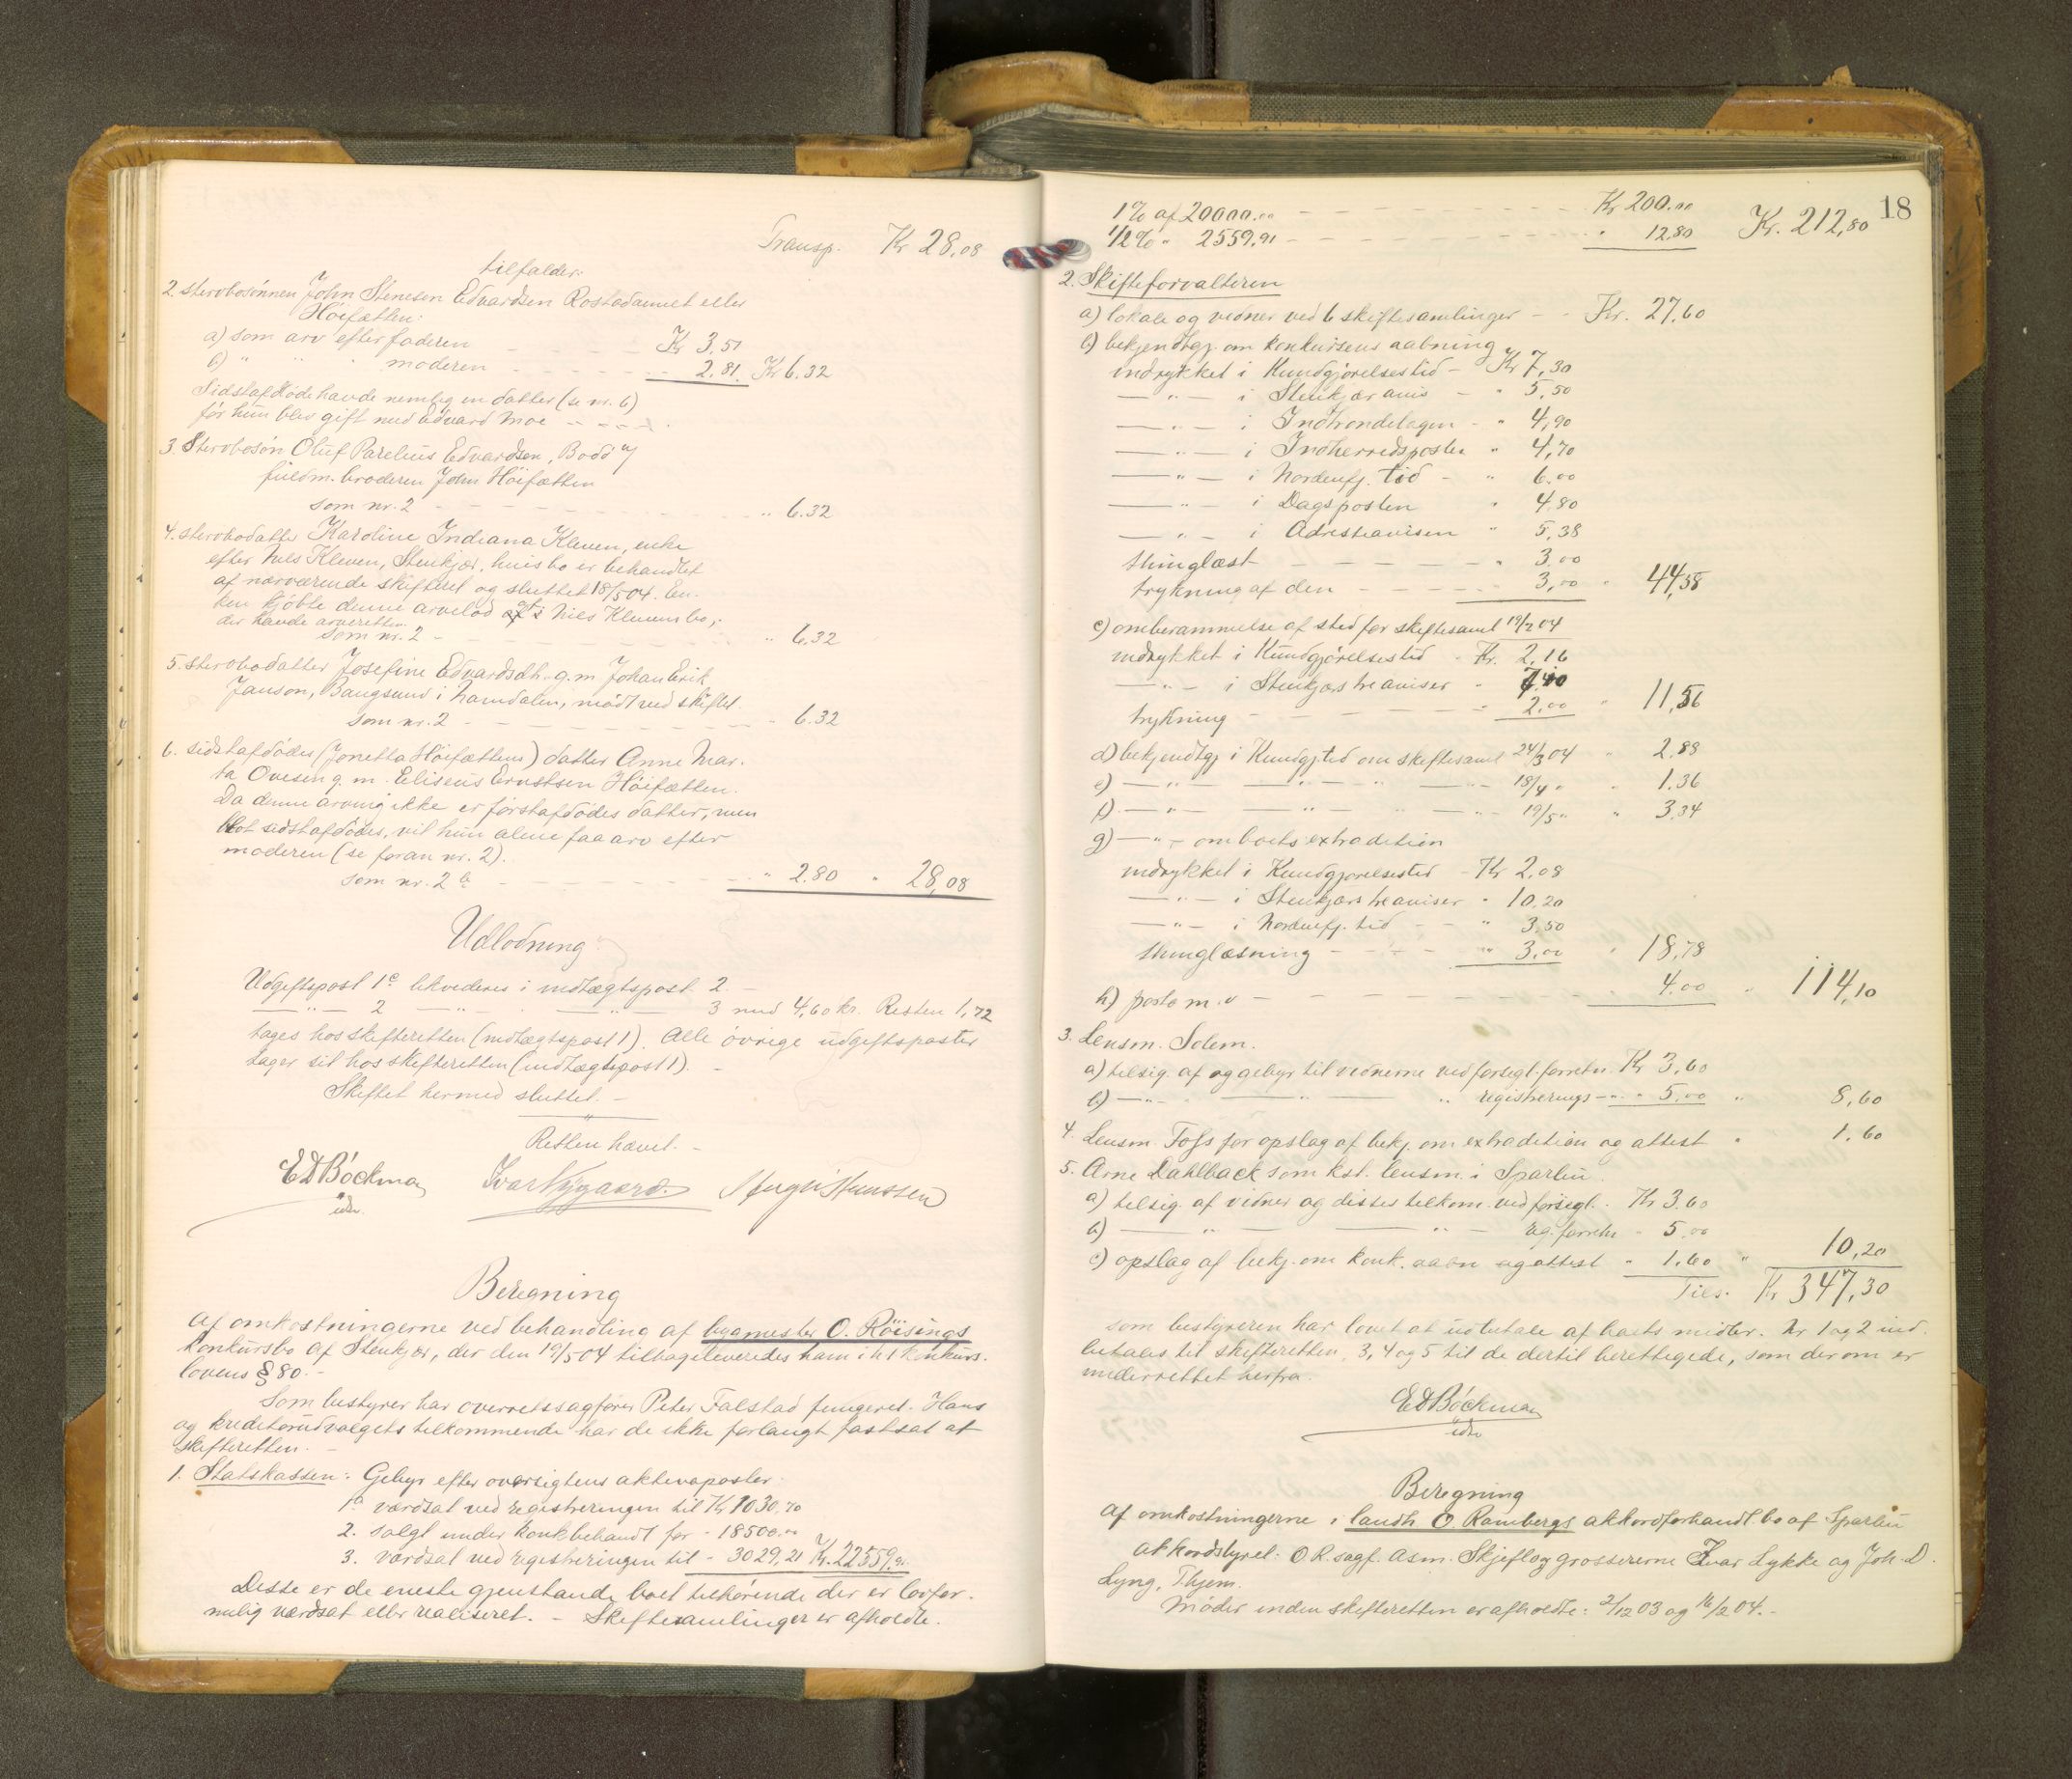 Transp. Kr 28,08
tilfalder:
2. stervbosønnen John Stenesen Edvardsen Rostadaunet eller
Höifætten:
a) som arv efter faderen Kr 3,51
b) " " " moderen 2.81 Kr 6.32
Sidstafdöde havde nemlig en datter (se nr. 6)
før hun blev gift med Edvard Moe
3. Stervbosön Oluf Parelius Edvardsen, Bodö v/
fuldm. broderen John Höifætten
som nr. 2 " 6.32
4. stervbodatter Karoline Indiana Kleven, enke
efter Nels Kleven, Stenkjær, hvis bo er behandlet
af nærværende skifteret og sluttet 18/5 04. En-
ken kjöbte denne arvelod i Niels Klevens bo,
der havde arveretten
som nr. 2 " 6.32
5. stervbodatter Josefine Edvardsdtr. g. m. Johan Erik
Janson, Bangsund i Namdalen, mödt ved skiftet
som nr. 2 " 6.32
6. sidstafdödes (Jonetta Höifættens) datter Anne Mar-
ta Ovesen g. m. Eliseus Ernstsen Höifætten.
Da denne arving ikke er förstafdödes datter, men
blot sidstafdödes, vil hun alene faa arv efter
moderen (se foran nr. 2).
som nr. 2 b " 2.80 " 28,08
Udlodning:
Udgiftspost 1 c likvideres i indtægtspost 2.
— " — 2 — " — — " — 3 med 4,60 kr. Resten 1,72
tages hos skifteretten (indtægtspost 1). Alle övrige udgiftsposter
tages sit hos skifteretten (indtægtspost 1). —
Skiftet hermed sluttet. —
"
Retten hævet. —
E D Böckman Ivar Nygaard.
Beregning
af omkostningerne ved behandling af bygmester O. Röisings
konkursbo af Stenkjær, der den 19/5 04 tilbageleveredes ham i h t konkurs-
lovens § 80. —
Som bestyrer har overretssagfører Peter Falstad fungeret. Hans
og kreditorudvalgets tilkommende har de ikke forlangt fastsat af
skifteretten. —
1. Statskassen: Gebyr efter oversigtens aktivaposter:
1 a værdsat ved registreringen til Kr 1030,70
2. solgt under konk.behandl for " 18500.00
3. værdsat ved registreringen til " 3029,21 Kr. 22559.91
Disse er de eneste gjenstande boet tilhørende der er lovfor-
melig værdsat eller realiseret. — Skiftesamlinger er afholdte.
18
1% af 20000.00 Kr 200.00
1/2% " 2559.91 " 12.80 Kr. 212,80
2. Skifteforvalteren
a) lokale og vidner ved 6 skiftesamlinger Kr. 27,60
b) bekjendtgj. om konkursens aabning
indrykket i Kundgjörelsestid Kr 7,30
— " — i Stenkjær avis " 5,50
— " — i Indtrondelagen " 4,90
— " — i Indherredsposten " 4,70
— " — i Nordenfj. tid " 6.00
— " — i Dagsposten " 4.80
— " — i Adresseavisen " 5,38
thinglæst " 3.00
trykning af den 3,00 " 44,58
c) omberammelse af sted for skiftesaml 19/2 04
indrykket i Kundgjörelsestid Kr. 2,16
— " — i Stenkjærs tre aviser " 7.40
trykning " 2.00 " 11,56
d) bekjendtgj i Kundgj.tid om skiftesaml 24/3 04 " 2,88
e) — " — — " — — " — 18/4 " " 1.36
f) — " — — " — — " — 19/5 " " 3,34
g) — " — om boets extradition
indrykket i Kundgjørelsestid Kr 2,08
— " — i Stenkjærs tre aviser " 10,20
— " — i Nordenfj. tid " 3,50
thinglæsning " 3,00 " 18,78
h) porto m. v. 4.00 " 114,10
3. Lensm. Solem.
a) tilsig. af og gebyr til vidnerne ved forsegl. forretn. Kr 3,60
b) — " — — " — " registrerings — " — " 5.00 " 8,60
4. Lensm. Foss for opslag af bekj. om extradition og attest " 1.60
5. Arne Dahlback som kst. lensm. i Sparbu
a) tilsig. af vidner og disses tilkom. ved forsegl. Kr 3.60
b) — " — — " — reg. forretn " 5.00
c) opslag af bekj. om konk. aabn og attest " 1.60 " 10,20
Tils. Kr 347,30
som bestyreren har lovet at udbetale af boets midler. Nr 1 og 2 ind-
betales til skifteretten, 3, 4 og 5 til de dertil berettigede, som derom er
underrettet herfra.
E D Böckman
Beregning
af omkostningerne i landh. O. Rambergs akkordforhandl. bo af Sparbu
akkordstyret: O. R. sagf. Asm. Skjeflo og grossererne Ivar Lykke og Joh. D.
Lyng, Thjem.
Møder inden skifteretten er afholdte: 2/12 03 og 16/2 04. —